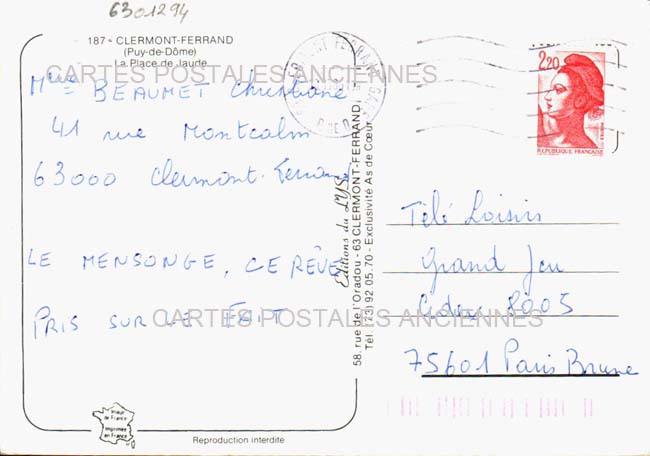 6301294
187 - CLERMONT-FERRAND
(Puy-de-Dôme)
La Place de Jaude
CARTES POSTALES ANCIENNES
Mme BEAUMET Christiane
41 rue Montcalm
63000 Clermont-Ferrand
LE MENSONGE, CE RÊVE
PRIS SUR LE FAIT
CARTES POSTALES ANCIENNES
Imprimée
en France
Reproduction interdite
Editions du LYS
58, rue de l'Oradou - 63 CLERMONT-FERRAND
Tél. (73) 92.05.70 - Exclusivité As de Cœur
2,20
REPUBLIQUE FRANÇAISE
Télé Loisirs
Grand Jeu
Cedex 8005
75601 Paris Brune